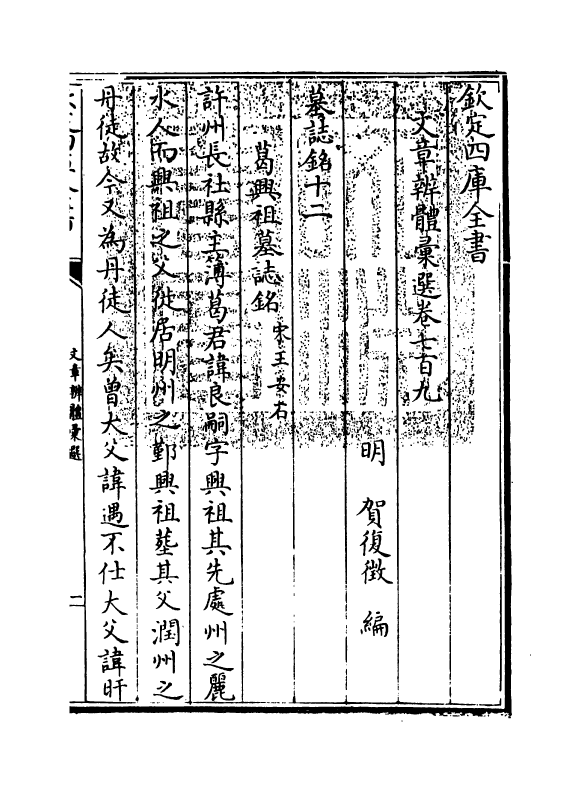 欽定四庫全書
文章辨體彙選卷七百九
明　賀復徵　編
墓誌銘十二
葛興祖墓誌銘　宋王安石
許州長社縣主簿葛君諱良嗣字興祖其先處州之麗
水人而興祖之父徙居明州之鄞興祖塟其父潤州之
丹徒故今又為丹徒人矣曾大父諱遇不仕大父諱旰
文章辨體彙選